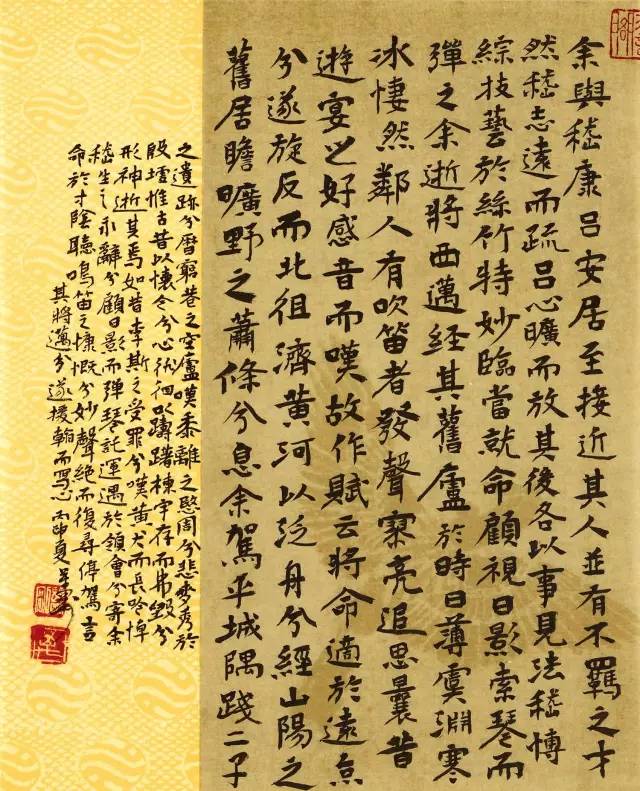 余與嵇康呂安居至接近其人並有不羈之才
然嵇志遠而疏呂心曠而放其後各以事見法嵇博
綜技藝於絲竹特妙臨當就命顧視日影索琴而
彈之余逝將西邁經其舊廬於時日薄虞淵寒
冰悽然鄰人有吹笛者發聲寥亮追思曩昔
遊宴之好感音而嘆故作賦云將命適於遠京
兮遂旋反而北徂濟黃河以泛舟兮經山陽之
舊居瞻曠野之蕭條兮息余駕乎城隅踐二子
之遺跡兮曆窮巷之空廬嘆黍離之愍周兮悲麥秀於
殷墟惟古昔以懷今兮心徘徊以躊躇棟宇存而弗毀兮
形神逝其焉如昔李斯之受罪兮嘆黃犬而長吟悼
嵇生之永辭兮顧日影而彈琴託運遇於領會兮寄余
命於寸陰聽鳴笛之慷慨兮妙聲絕而復尋停駕言
其將邁兮遂援翰而寫心丙申夏